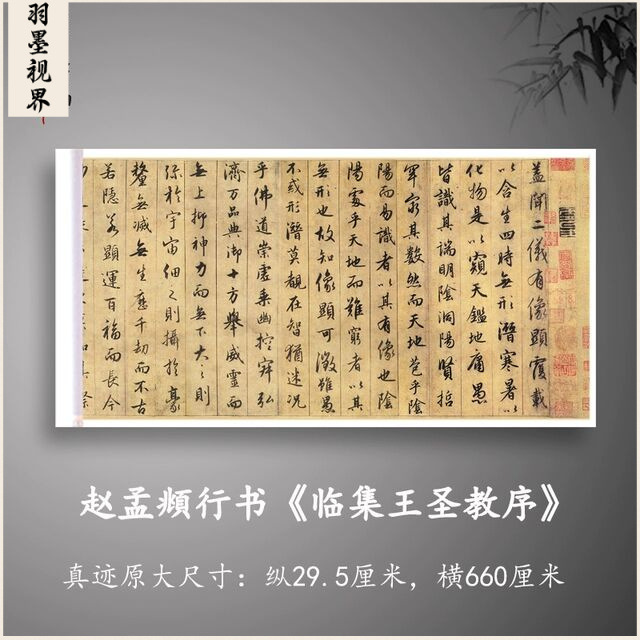 羽墨视界
蓋聞二儀有像顯覆載
以含生四時無形潛寒暑以
化物是以窺天鑑地庸愚
皆識其端明陰洞陽賢哲
罕窮其數然而天地苞乎陰
陽而易識者以其有像也陰
陽處乎天地而難窮者以其
無形也故知像顯可徵雖愚
不惑形潛莫覩在智猶迷況
乎佛道崇虛乘幽控寂弘
濟万品典御十方舉威靈而
無上抑神力而無下大之
弥於宇宙細之則攝於豪
釐無滅無生歷千劫而不古
若隱若顯運百福而長今
赵孟頫行书《临集王圣教序》
真迹原大尺寸：纵29.5厘米，横660厘米